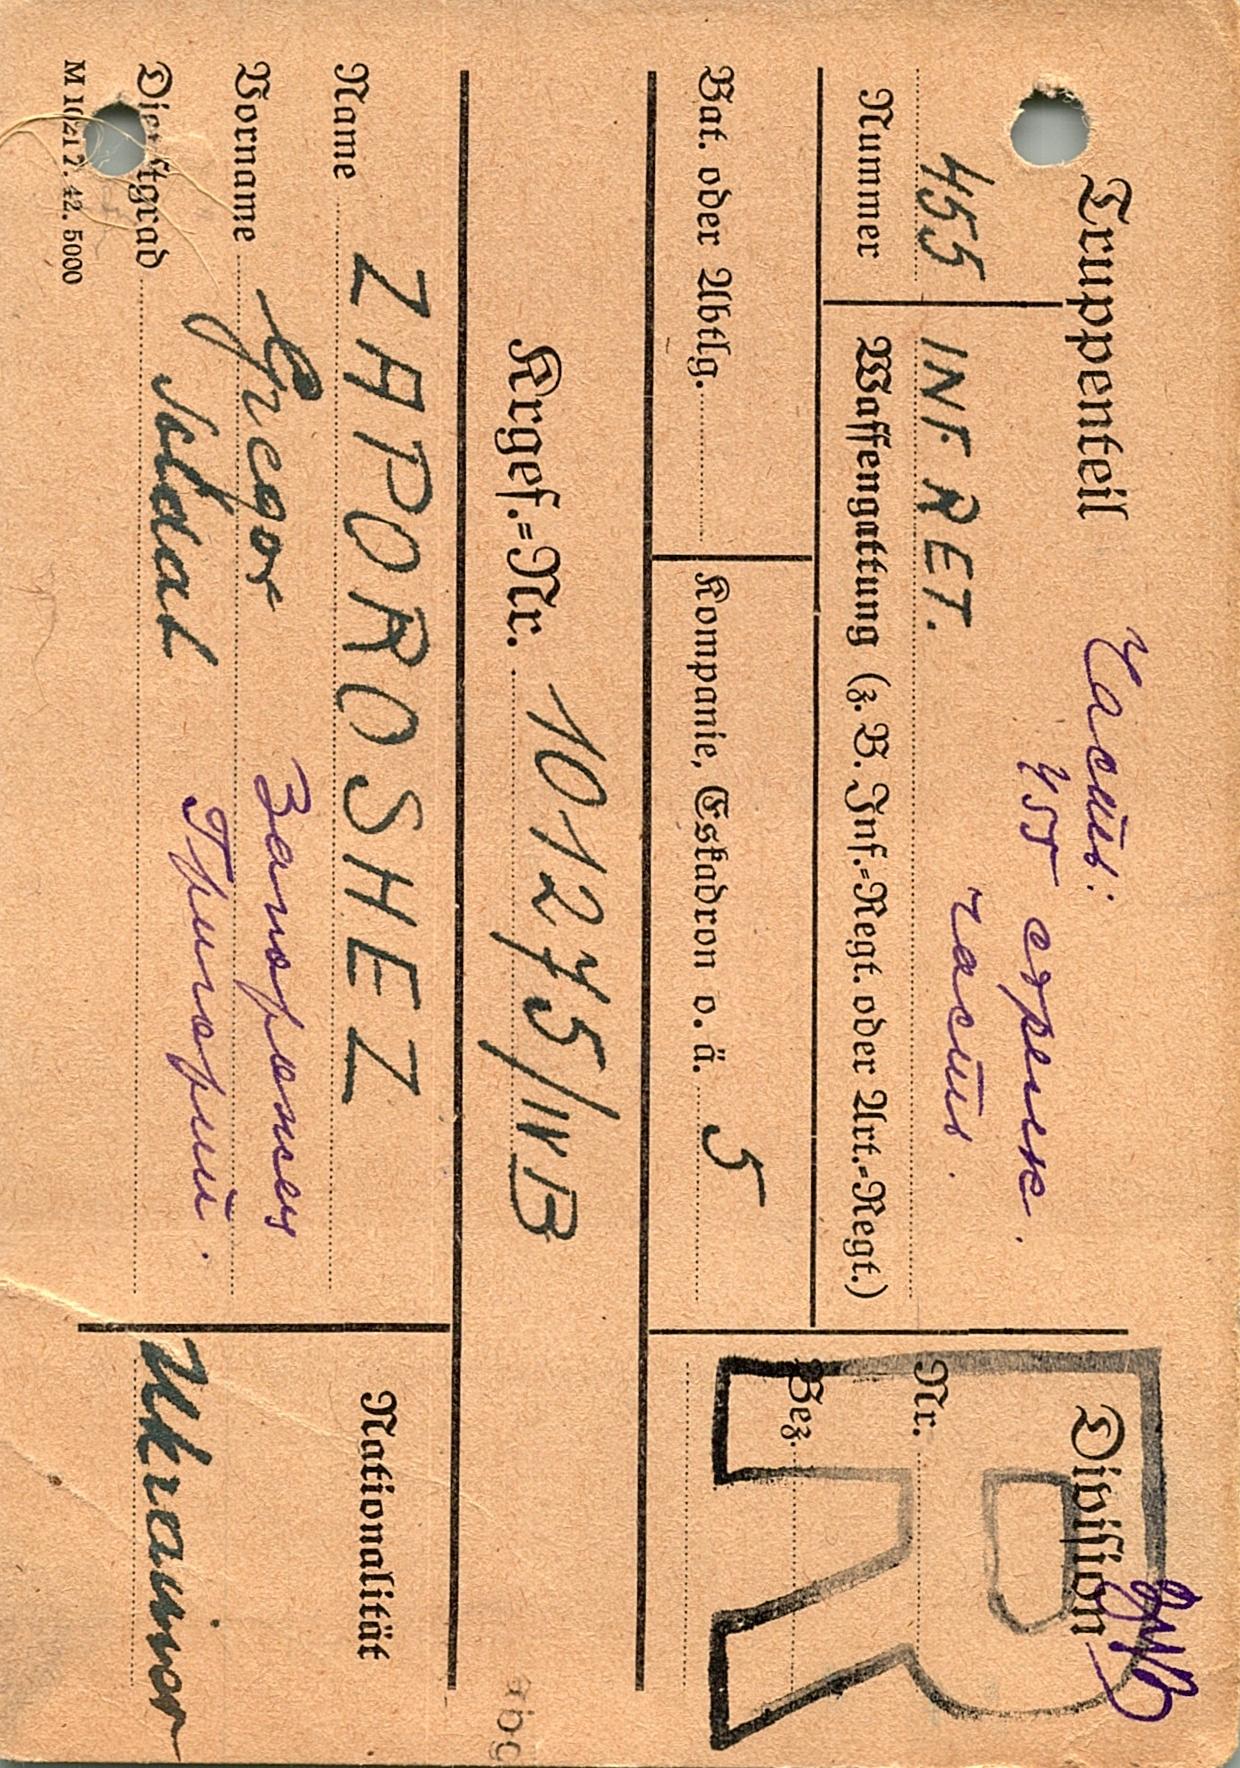 Truppenteil
Часть:
455 стрелк.
часть.
Division
455 INF. RET.
Nr.
Nummer
Waffengattung (z. B. Inf.=Regt. oder Art.=Regt.)
Bez.
R
Bat. oder Abtlg.
Kompanie, Eskadron o. ä. 5
Krgef.=Nr. 101275/IVB
abg
Name ZAPOROSHEZ
Nationalität
Vorname Gregor
Запорожец
Dienstgrad Soldat
Григорий.
Ukrainer
M 1021 7. 42. 5000